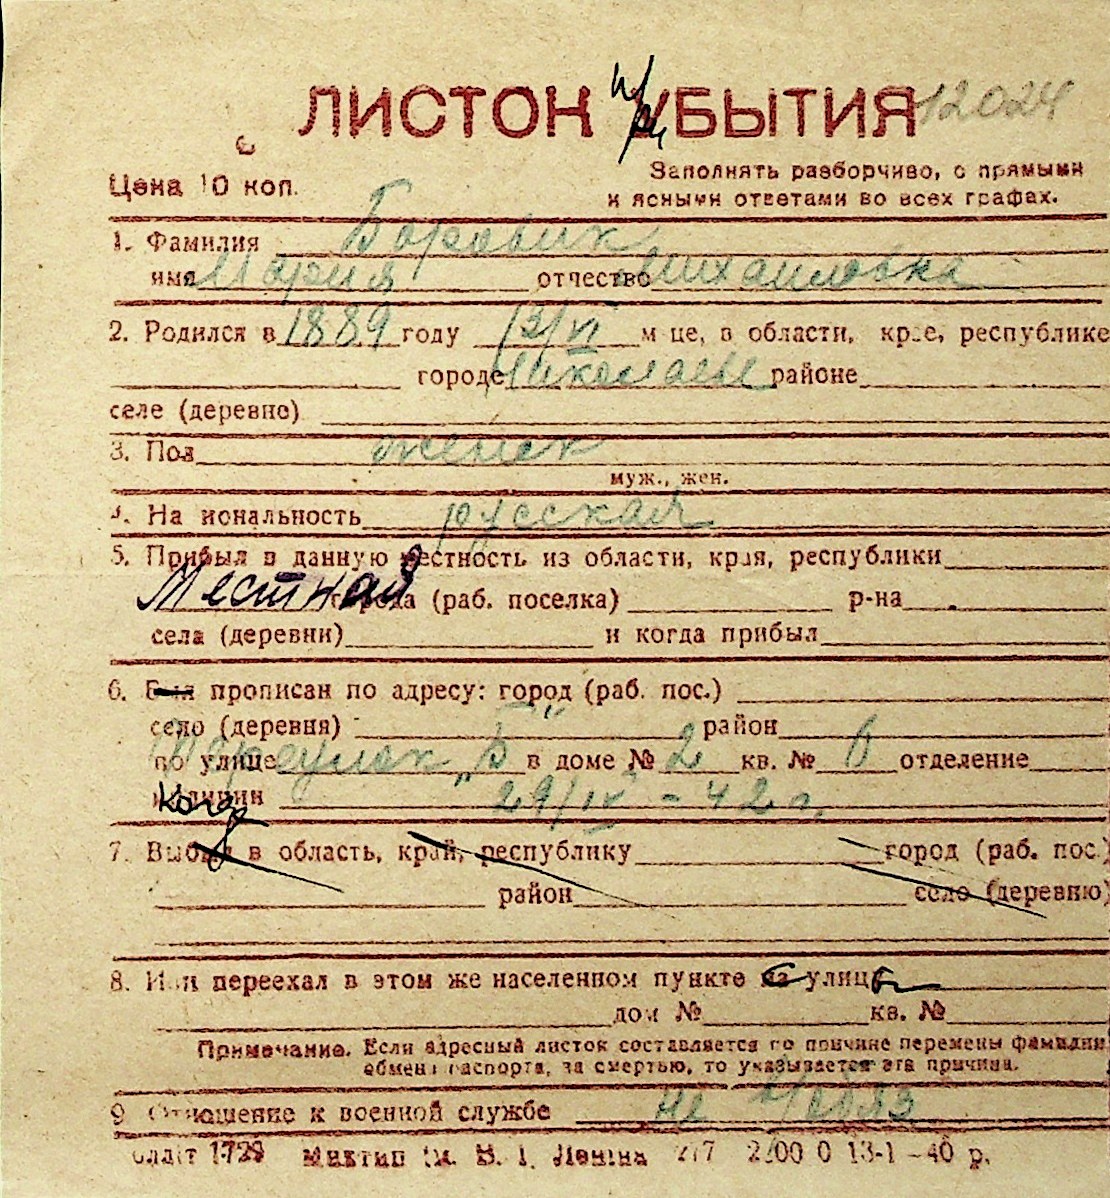 ЛИСТОН УБЫТИЯ 12024
Цена 10 коп.
Заполнять разборчиво, с прямыми
и ясными ответами во всех графах.
1. Фамилия Боровик
имя Мария отчество Михайловна
2. Родился в 1889 году 13/VI м-це, в области, крае, республике
городе Николаеве районе
селе (деревне)
3. Пол женск
муж., жен.
4. На иональность русская
5. Прибыл в данную местность из области, края, республики
Местная города (раб. поселка) р-на
села (деревни) и когда прибыл
6. Был прописан по адресу: город (раб. пос.)
село (деревня) район
по улице Переулок „Б“ в доме № 2 кв. № 6 отделение
милиции когда 29/IV - 42 г.
7. Выбыл в область, край, республику город (раб. пос.)
район село (деревню)
8. Или переехал в этом же населенном пункте с улицы
дом № кв. №
Примечание. Если адресный листок составляется по причине перемены фамилии
обмена паспорта, за смертью, то указывается эта причина.
9 Отношение к военной службе не в/обяз
1729 Миктип В. І. Леніна 2/7 13-1-40 р.